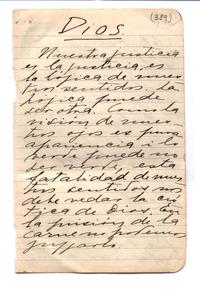 (389)
Dios
Nuestra justicia
es la justicia, es
la lógica de nues
tros sentidos. La
lógica puede
ser otra. Como la
visión de nues
tros ojos es pura
apariencia i lo
verde puede no
ser verde, esta
fatalidad de nues
tros sentidos nos
debe vedar la crí
tica de Dios. Con
la prisión de la
carne no podemos
juzgarlo